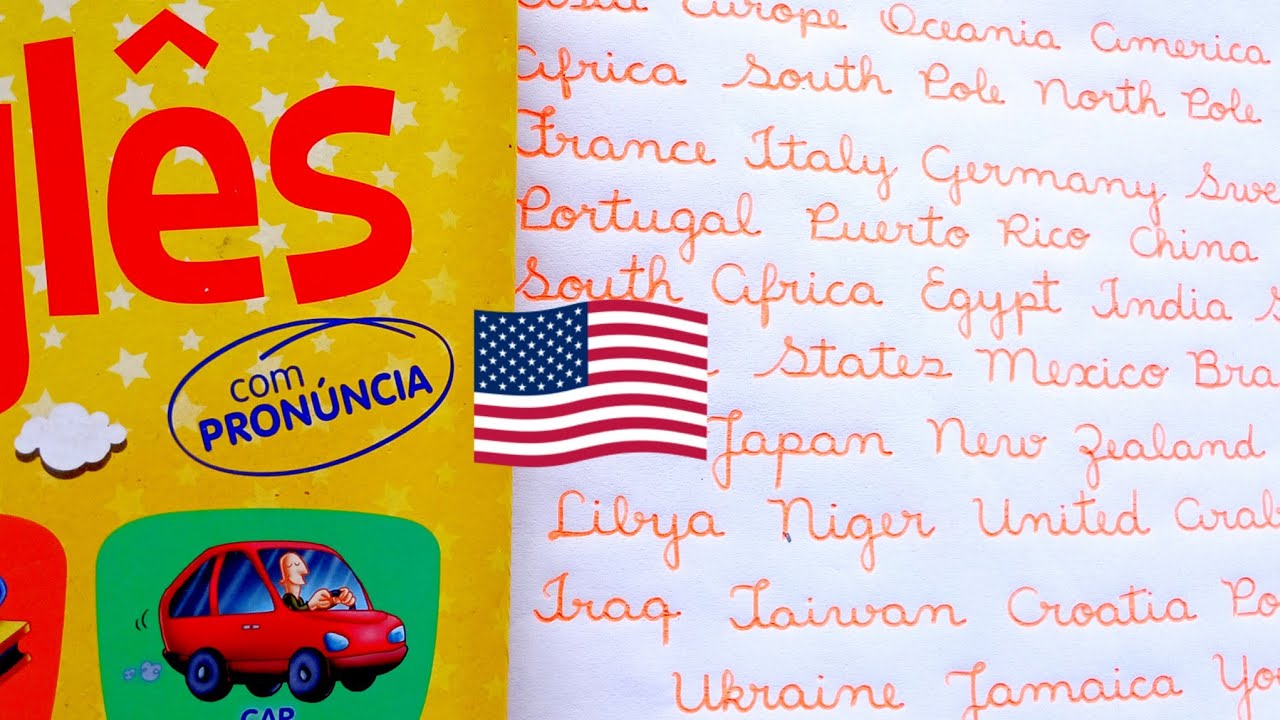 glês
com
PRONÚNCIA
CAR
Europe Oceania America
Africa South Pole North Pole
France Italy Germany Swe
Portugal Puerto Rico China
South Africa Egypt India S
States Mexico Bra
Japan New Zealand
Libya Niger United Arab
Iraq Taiwan Croatia Po
Ukraine Jamaica Yo